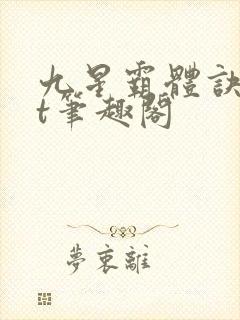 九星霸體訣
t筆趣閣
夢衷離